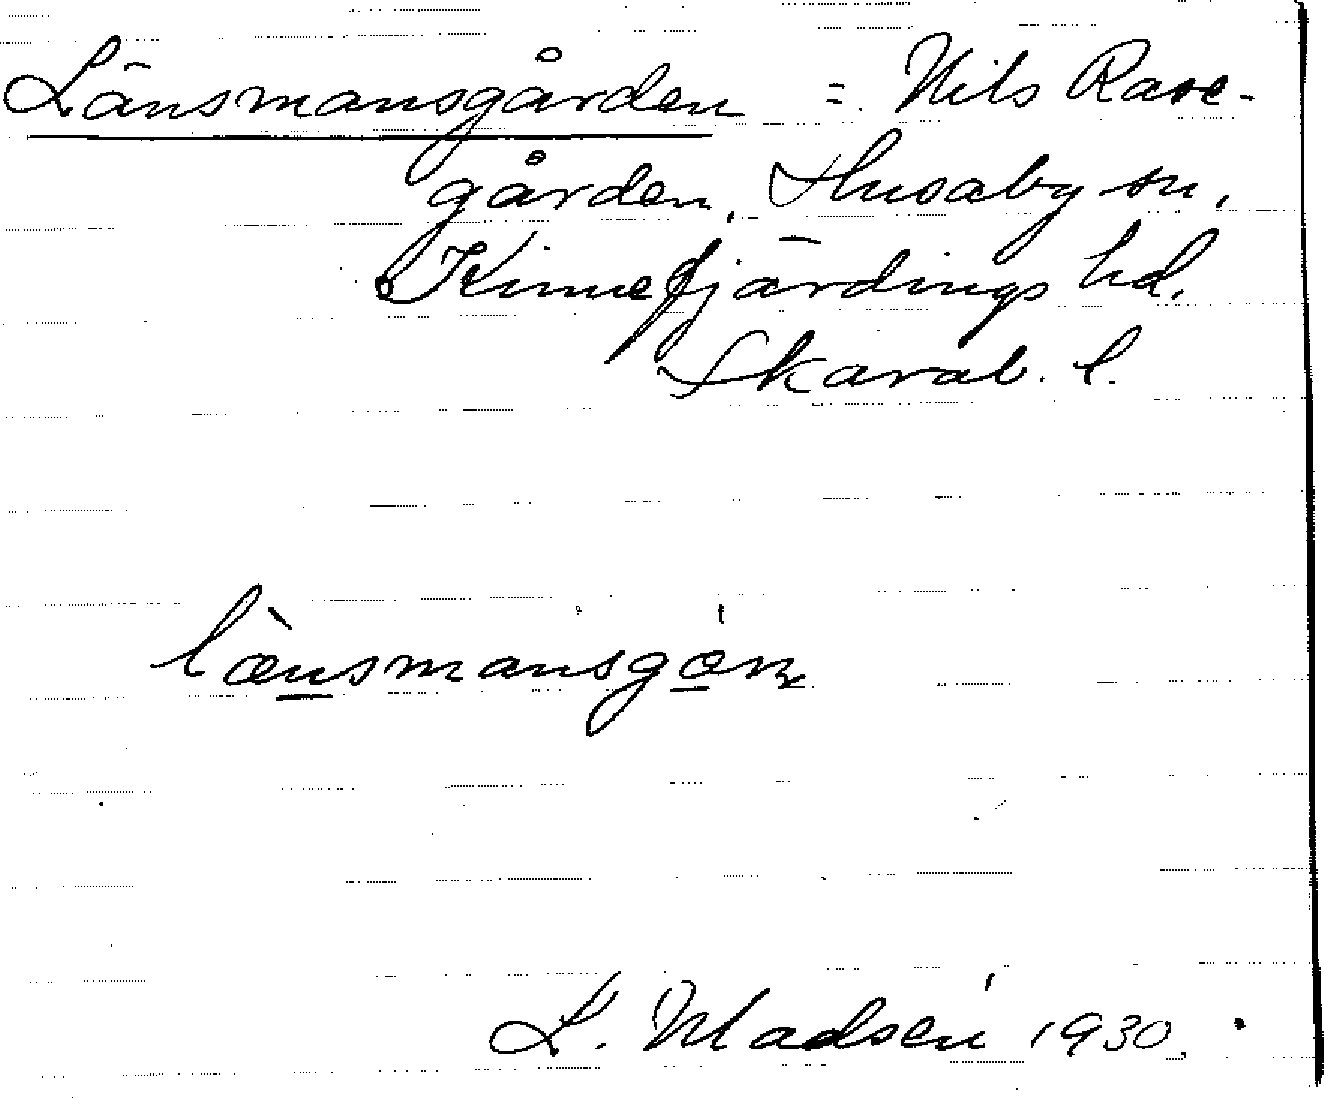 Länsmansgården = Nils Rare-
gården, Husaby sn,
Kinnefjärdings hd,
Skarab. l.
lænsmansgɑ̀ɳ
L. Madsén 1930.